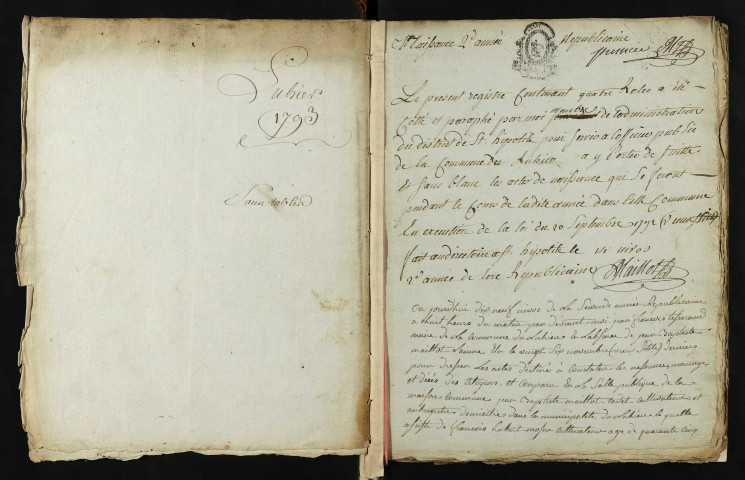 Luhier
1793
Sans tables
Naissance 2e année Republicaine
premier
Le present registre Contenant quatre Roles a été
Cotté et paraphé par moi membre de l'administration
du district de St hipolite pour servir a l'officier public
de la Commune du Luhier a y Porter de suitte
& sans blanc les actes de naissance qui se feront
pendant le Cours de ladite année dans cette Commune
En execution de la loi du 20 Septembre 1792
fait au directoire a St hipolite le 14 nivos
2e année de l'ere Republicaine Maillot
aujourd'hui dix neuf nivos de la Seconde année Republicaine
a huit heures du matin par devant moi
maire de la Commune du Luhier de jean baptiste
maillot le vingt six novembre dernier
pour dresser les actes destiné a Constater les naissance mariage
et décès des Citoyens, et Comparu En la Salle publique de la
maison Commune jean baptiste maillot Cultivateur et
domicilié dans la municipalité du Luhier le quelle
assisté de francois Cultivateur agé de quarante cinq